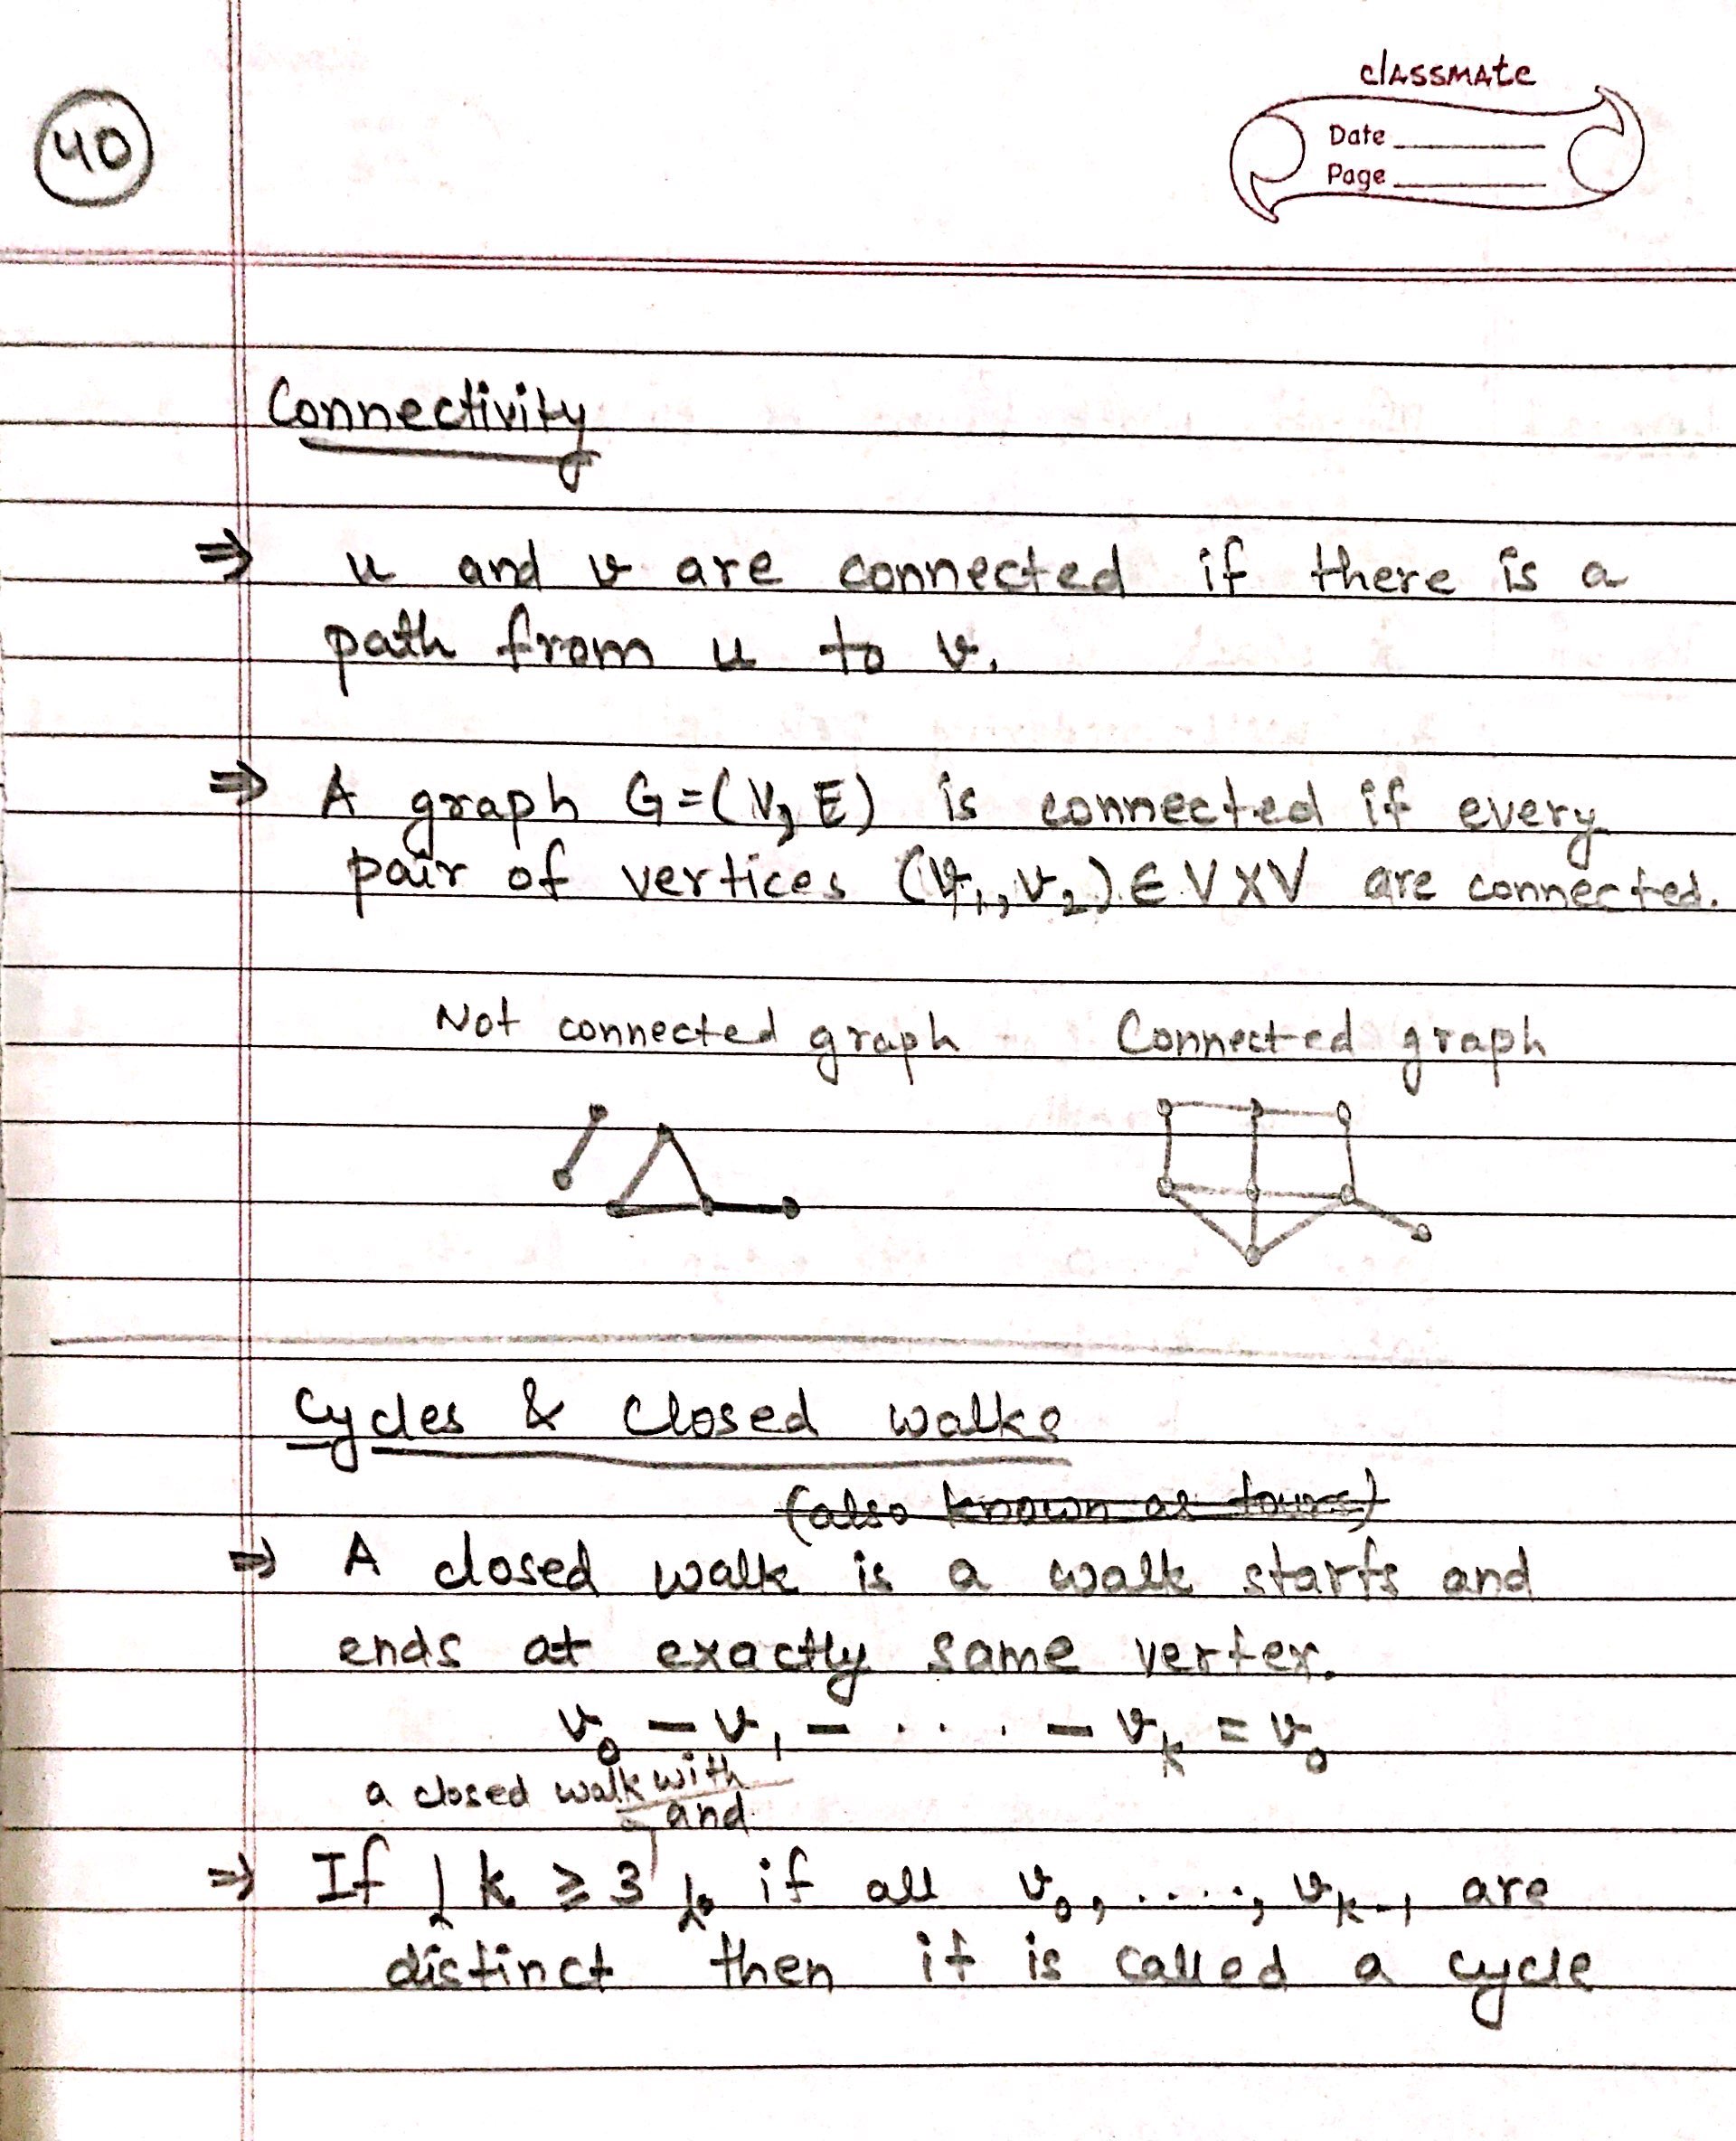 40
classmate
Date
Page
Connectivity
⇒ u and v are connected if there is a
path from u to v.
⇒ A graph G=(V, E) is connected if every
pair of vertices (v₁, v₂) ∈ V X V are connected.
Not connected graph Connected graph
Cycles & Closed walks
(also known as tours)
⇒ A closed walk is a walk starts and
ends at exactly same vertex.
v₀ – v₁ – .... – vₖ = v₀
a closed walk with
and
⇒ If k ≥ 3, if all v₀, ....., vₖ₋₁ are
distinct then it is called a cycle